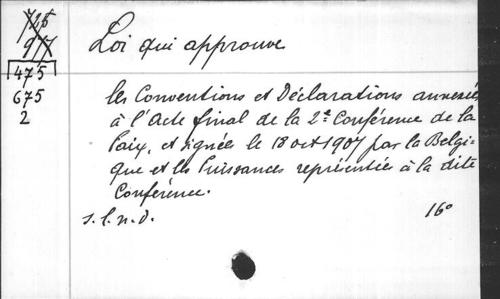 715
917
475
675
2
Loi qui approuve
les Conventions et Déclarations annexées
à l'Acte final de la 2e Conférence de la
Paix, et signée le 18 oct 1907 par la Belgi-
que et les Puissances représentées à la dite
Conférence.
s.l.n.d.
16°